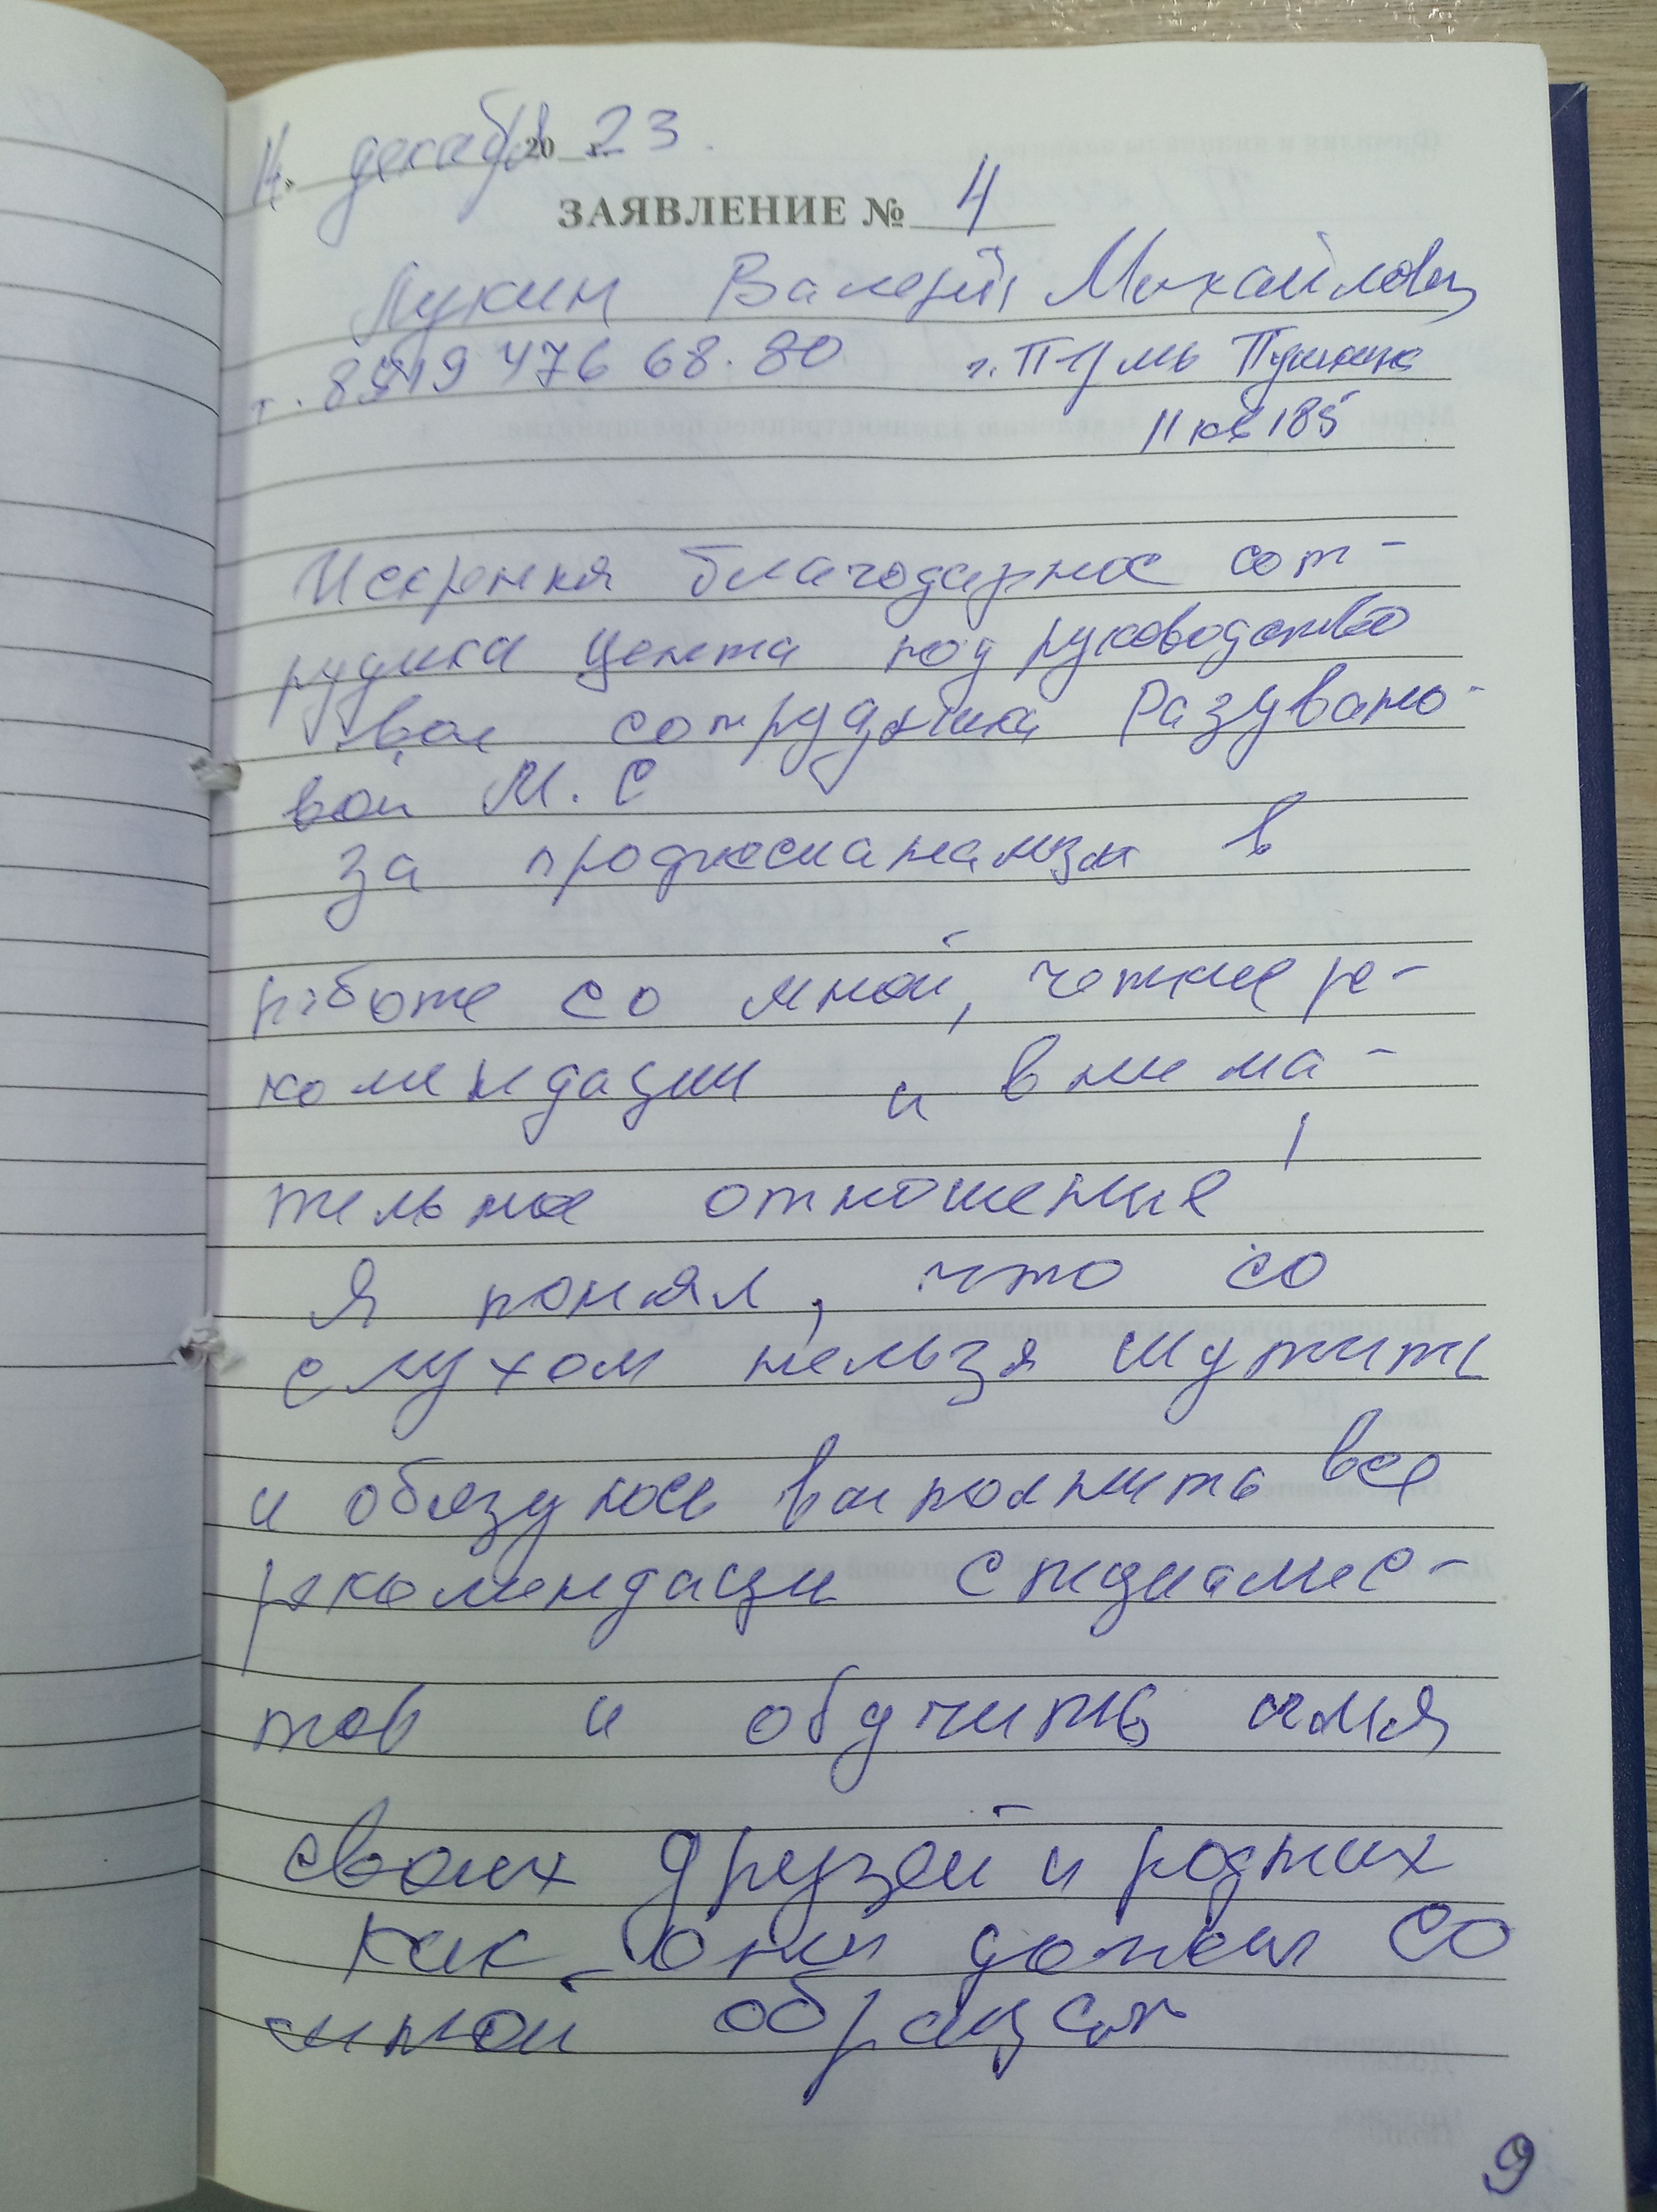 14 декабря 2023.
ЗАЯВЛЕНИЕ № 4
Лукин Валерий Михайлович
т. 8919 476 68.80 г. Пермь Пушкина
11 кв 185
Искрення благодарнос сот-
рудника цента под руководство
вое сотрудника Разувано-
вой М. С
за професианализм в
работе со мной, четкие ре-
комендации и внима-
тельное отношение!
Я понял, что со
слухом нельзя шутить
и обязуюсь выполнить все
рекомендаци специалис-
тов и обучить
своих друзей и родних
как они должен со
мной обращат
9